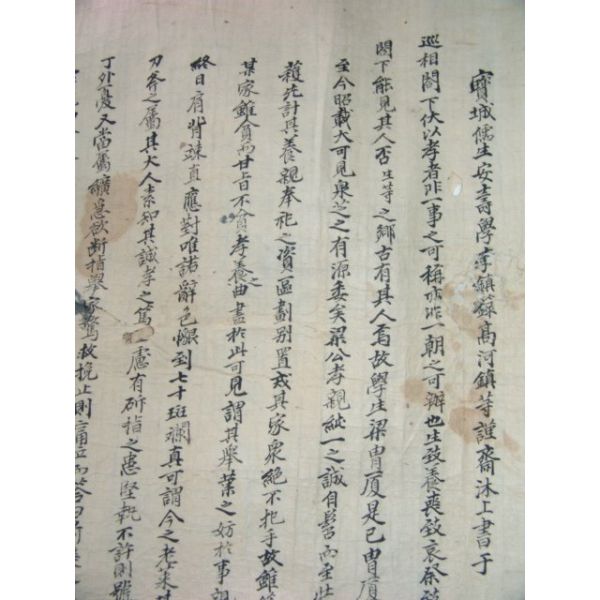 寶城儒生安壽學李鎭蘓高河鎭等謹齋沐上書于
巡相閤下伏以孝者非一事之可稱亦非一朝之可辦也生致養喪致哀祭致
閤下能見其人否生等之鄕古有其人焉故學生梁冑厦是已冑厦
至今昭載大可見泉芝之有源委矣梁公孝親純一之誠自髫而至
蔬先計其養親奉祀之資區劃别置戒其家衆絶不把手故雖
某家雖貧而甘旨不貧孝養之曲盡於此可見謂其擧業之妨於事親
終日肩背竦直應對唯諾辭色愰到七十斑斕真可謂今之老萊
刃斧之屬其大人素知其誠孝之篤慮有斫指之患堅執不許則號
丁外憂又當屬纊慈欲斷指擧家驚救挽止則